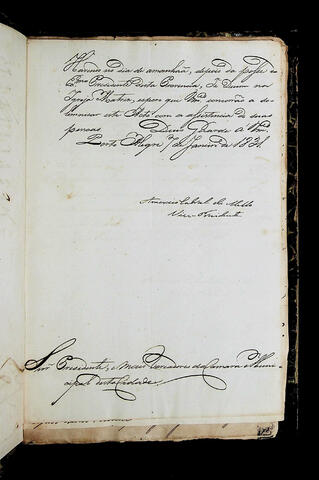 Havendo no dia de amanhãa, depois da posse do
Exmo Presidente desta Provincia, Te Deum na
Igreja Matriz, espero que Vmces concorrão a so-
lemnisar este Acto com a assistencia de suas
pessoas. Deus Guarde a Vmces
Porto Alegre 7 de Janeiro de 1831.
Americo Cabral de Mello
Vice-Presidente
Snres Presidente, e mais Vereadores da Camara Muni-
cipal desta Cidade